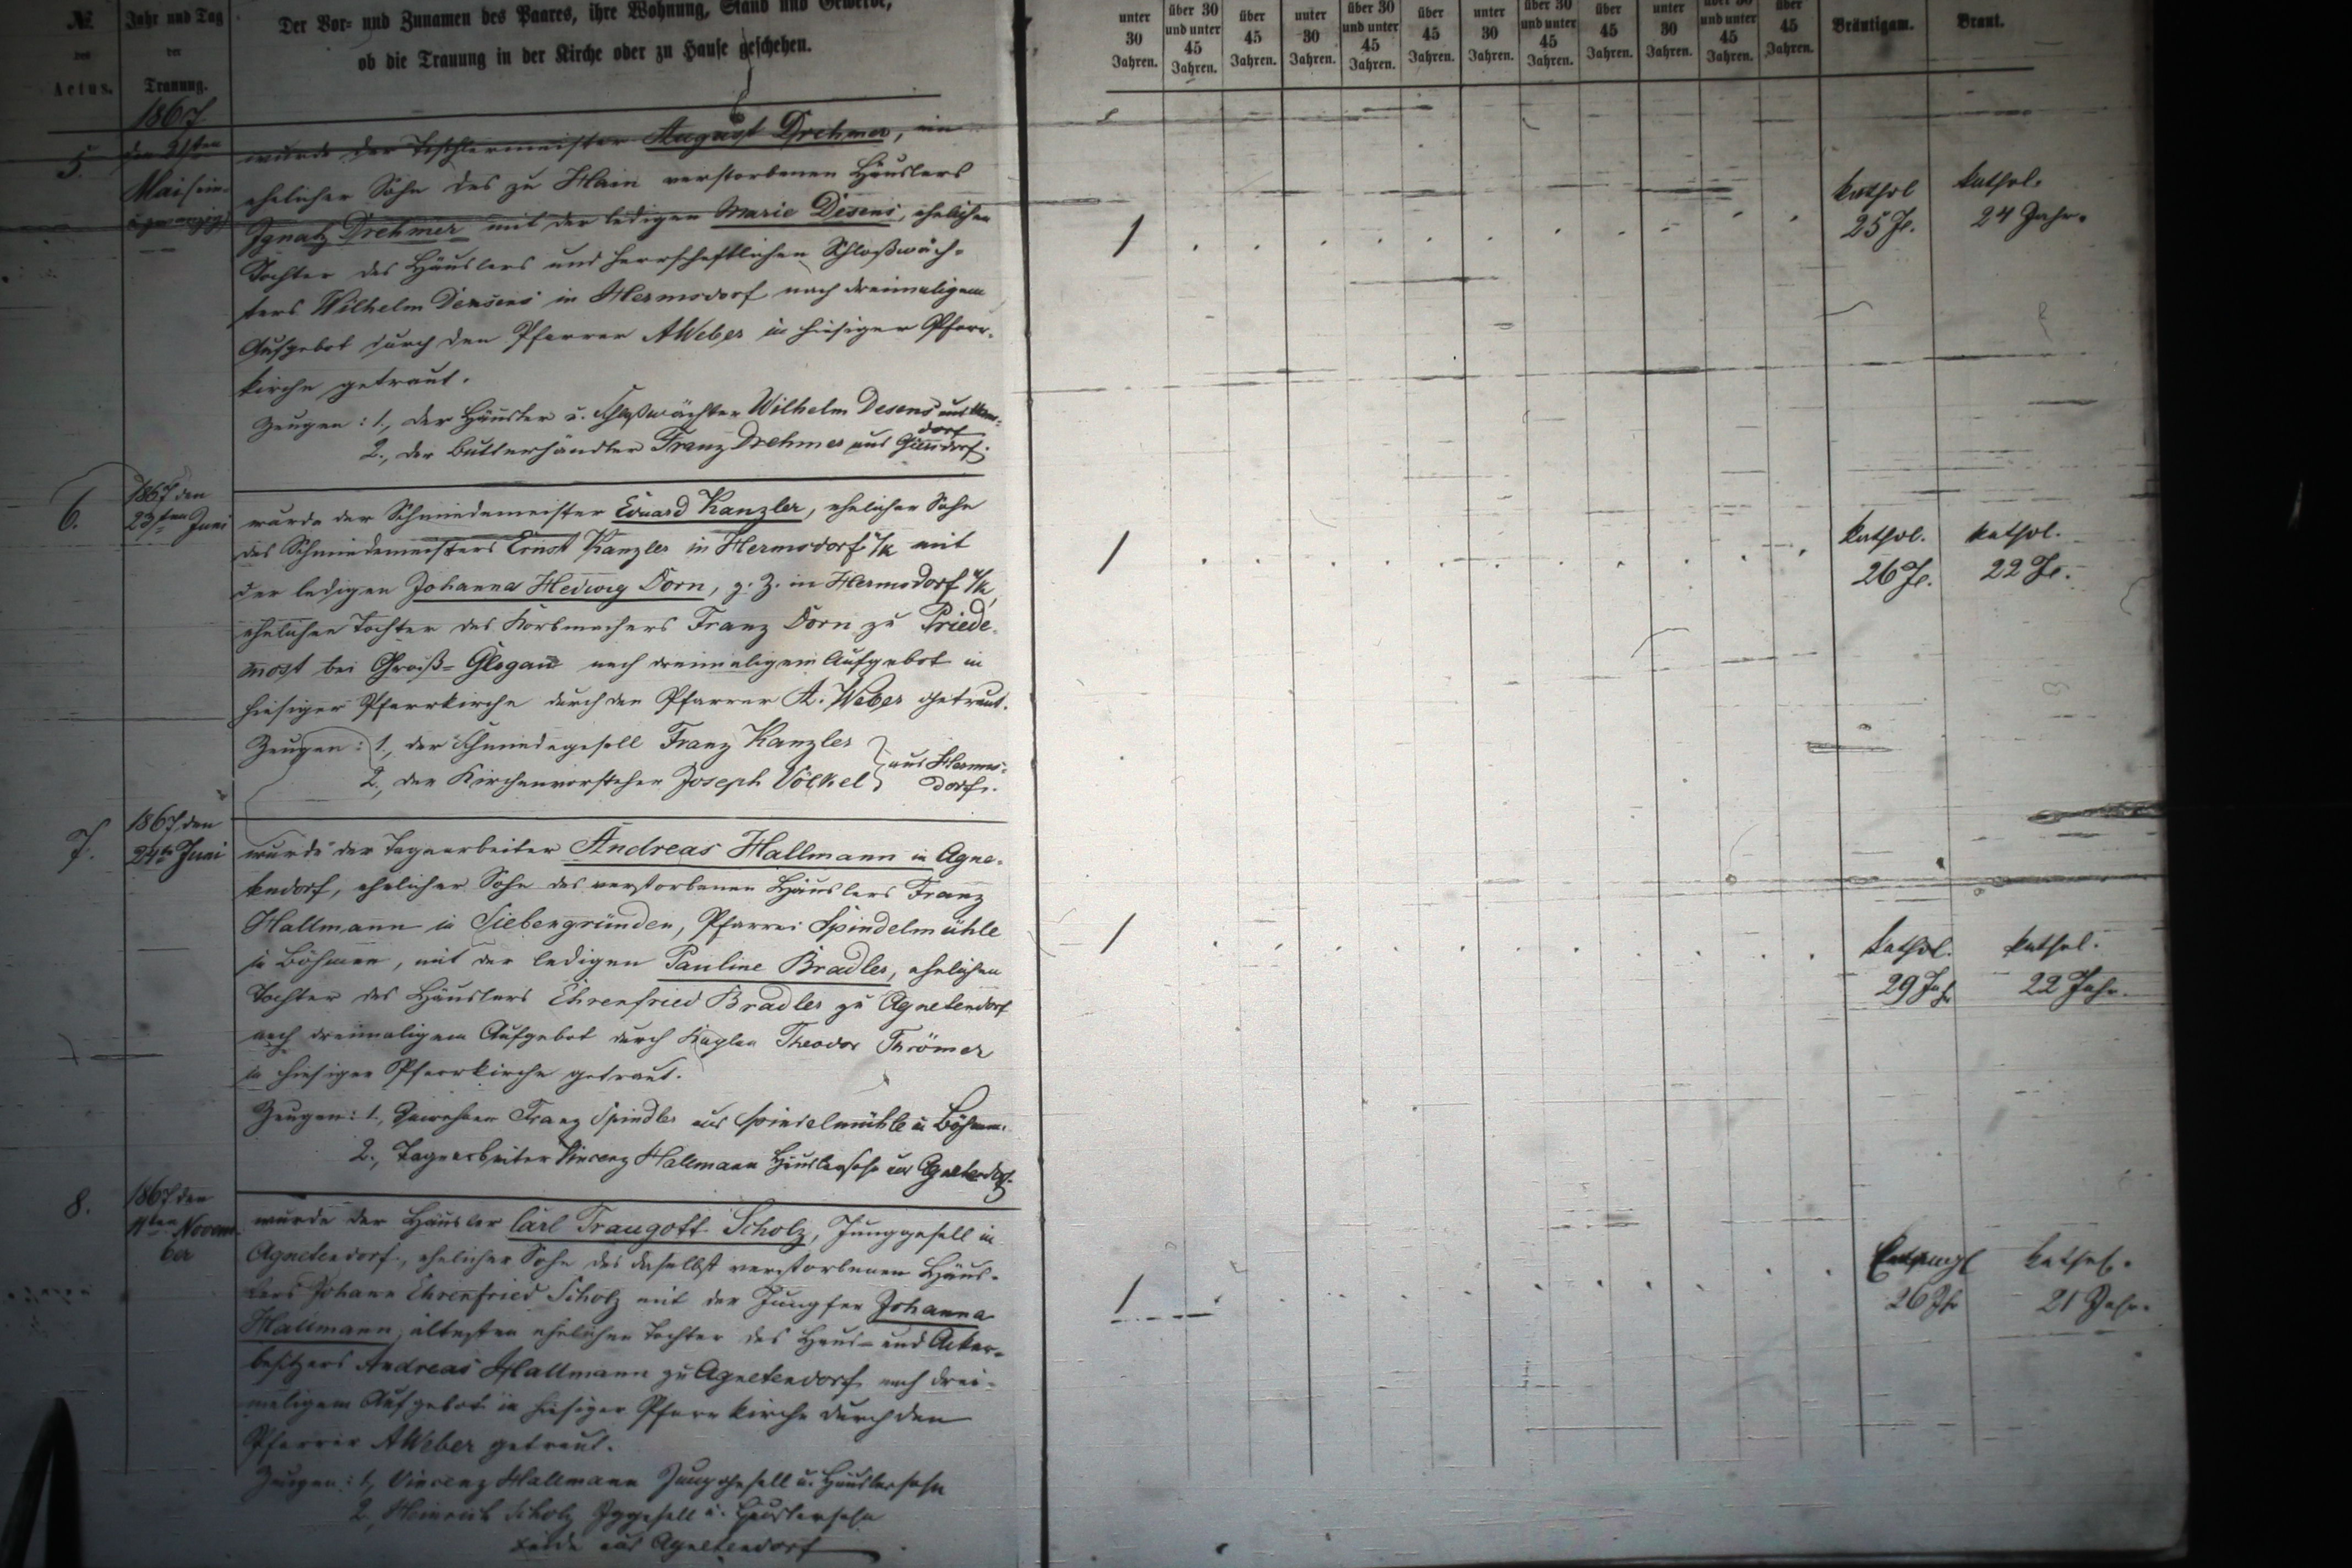 № Jahr und Tag Der Vor- und Zunamen des Paares, ihre Wohnung, Stand und Gewerbe,
des der ob die Trauung in der Kirche oder zu Hause geschehen.
Actus. Trauung.
unter 30 Jahren. über 30 und unter 45 Jahren. über 45 Jahren. unter 30 Jahren. über 30 und unter 45 Jahren. über 45 Jahren. unter 30 Jahren. über 30 und unter 45 Jahren. über 45 Jahren. unter 30 Jahren. über 30 und unter 45 Jahren. über 45 Jahren. Bräutigam. Braut.
1867
5. den 21sten wurde der Tischlermeister August Drehmer, ein
Mai (ein- ehelicher Sohn des zu Hain verstorbenen Häuslers
u zwanzig) Ignatz Drehmer mit der ledigen Marie Desens, ehelichen
Tochter des Häuslers und herrschaftlichen Schloßwäch-
ters Wilhelm Densens in Hermsdorf nach dreimaligem
Aufgebot durch den Pfarrer AWeber in hiesiger Pfarr-
kirche getraut.
Zeugen: 1., der Häusler u. Schloßwächter Wilhelm Desens aus Herms-
dorf
2., der Butterhändler Franz Drehmer aus
1 kathol kathol.
25 J. 24 Jahr.
6. 1867 den
23sten Juni wurde der Schmiedemeister Eduard Kanzler, ehelicher Sohn
des Schmiedemeisters Ernst Kanzler in Hermsdorf u/k mit
der ledigen Johanna Hedwig Dorn, z. Z. in Hermsdorf u/k,
ehelichen Tochter des Korbmachers Franz Dorn zu Priede-
most bei Groß-Glogau nach dreimaligem Aufgebot in
hiesiger Pfarrkirche durch den Pfarrer A. Weber getraut.
Zeugen: 1., der Schmiedegesell Franz Kanzler
2., der Kirchenvorsteher Joseph Völkel } aus Herms-
dorf.
1 kathol. kathol.
26 J. 22 J.
7. 1867 den
24te Juni wurde der Tagearbeiter Andreas Hallmann in Agne-
tendorf, ehelicher Sohn des verstorbenen Häuslers Franz
Hallmann in Siebengründen, Pfarrei Spindelmühle
in Böhmen, mit der ledigen Pauline Bradler, ehelichen
Tochter des Häuslers Ehrenfried Bradler zu Agnetendorf
nach dreimaligem Aufgebot durch Kaplan Theodor Thrömer
in hiesiger Pfarrkirche getraut.
Zeugen: 1., Inwohner Franz Spindler aus Spindelmühle in Böhmen.
2., Tagearbeiter Vincenz Hallmann Häuslersohn aus Agnetendorf.
1 kathol. kathol.
29 Jahr 22 Jahr.
8. 1867 den
11ten Novem- wurde der Häusler Carl Traugott Scholz, Junggesell in
ber Agnetendorf, ehelicher Sohn des daselbst verstorbenen Häus-
lers Johann Ehrenfried Scholz mit der Jungfer Johanna
Hallmann, ältesten ehelichen Tochter des Haus- und Acker-
besitzers Andreas Hallmann zu Agnetendorf nach drei-
maligem Aufgebot in hiesiger Pfarrkirche durch den
Pfarrer AWeber getraut.
Zeugen: 1., Vincenz Hallmann Junggesell u. Häuslersohn
2., Heinrich Scholz Jggesell u. Häuslersohn
beide aus Agnetendorf
1 kathol.
26 J 21 Jahr.